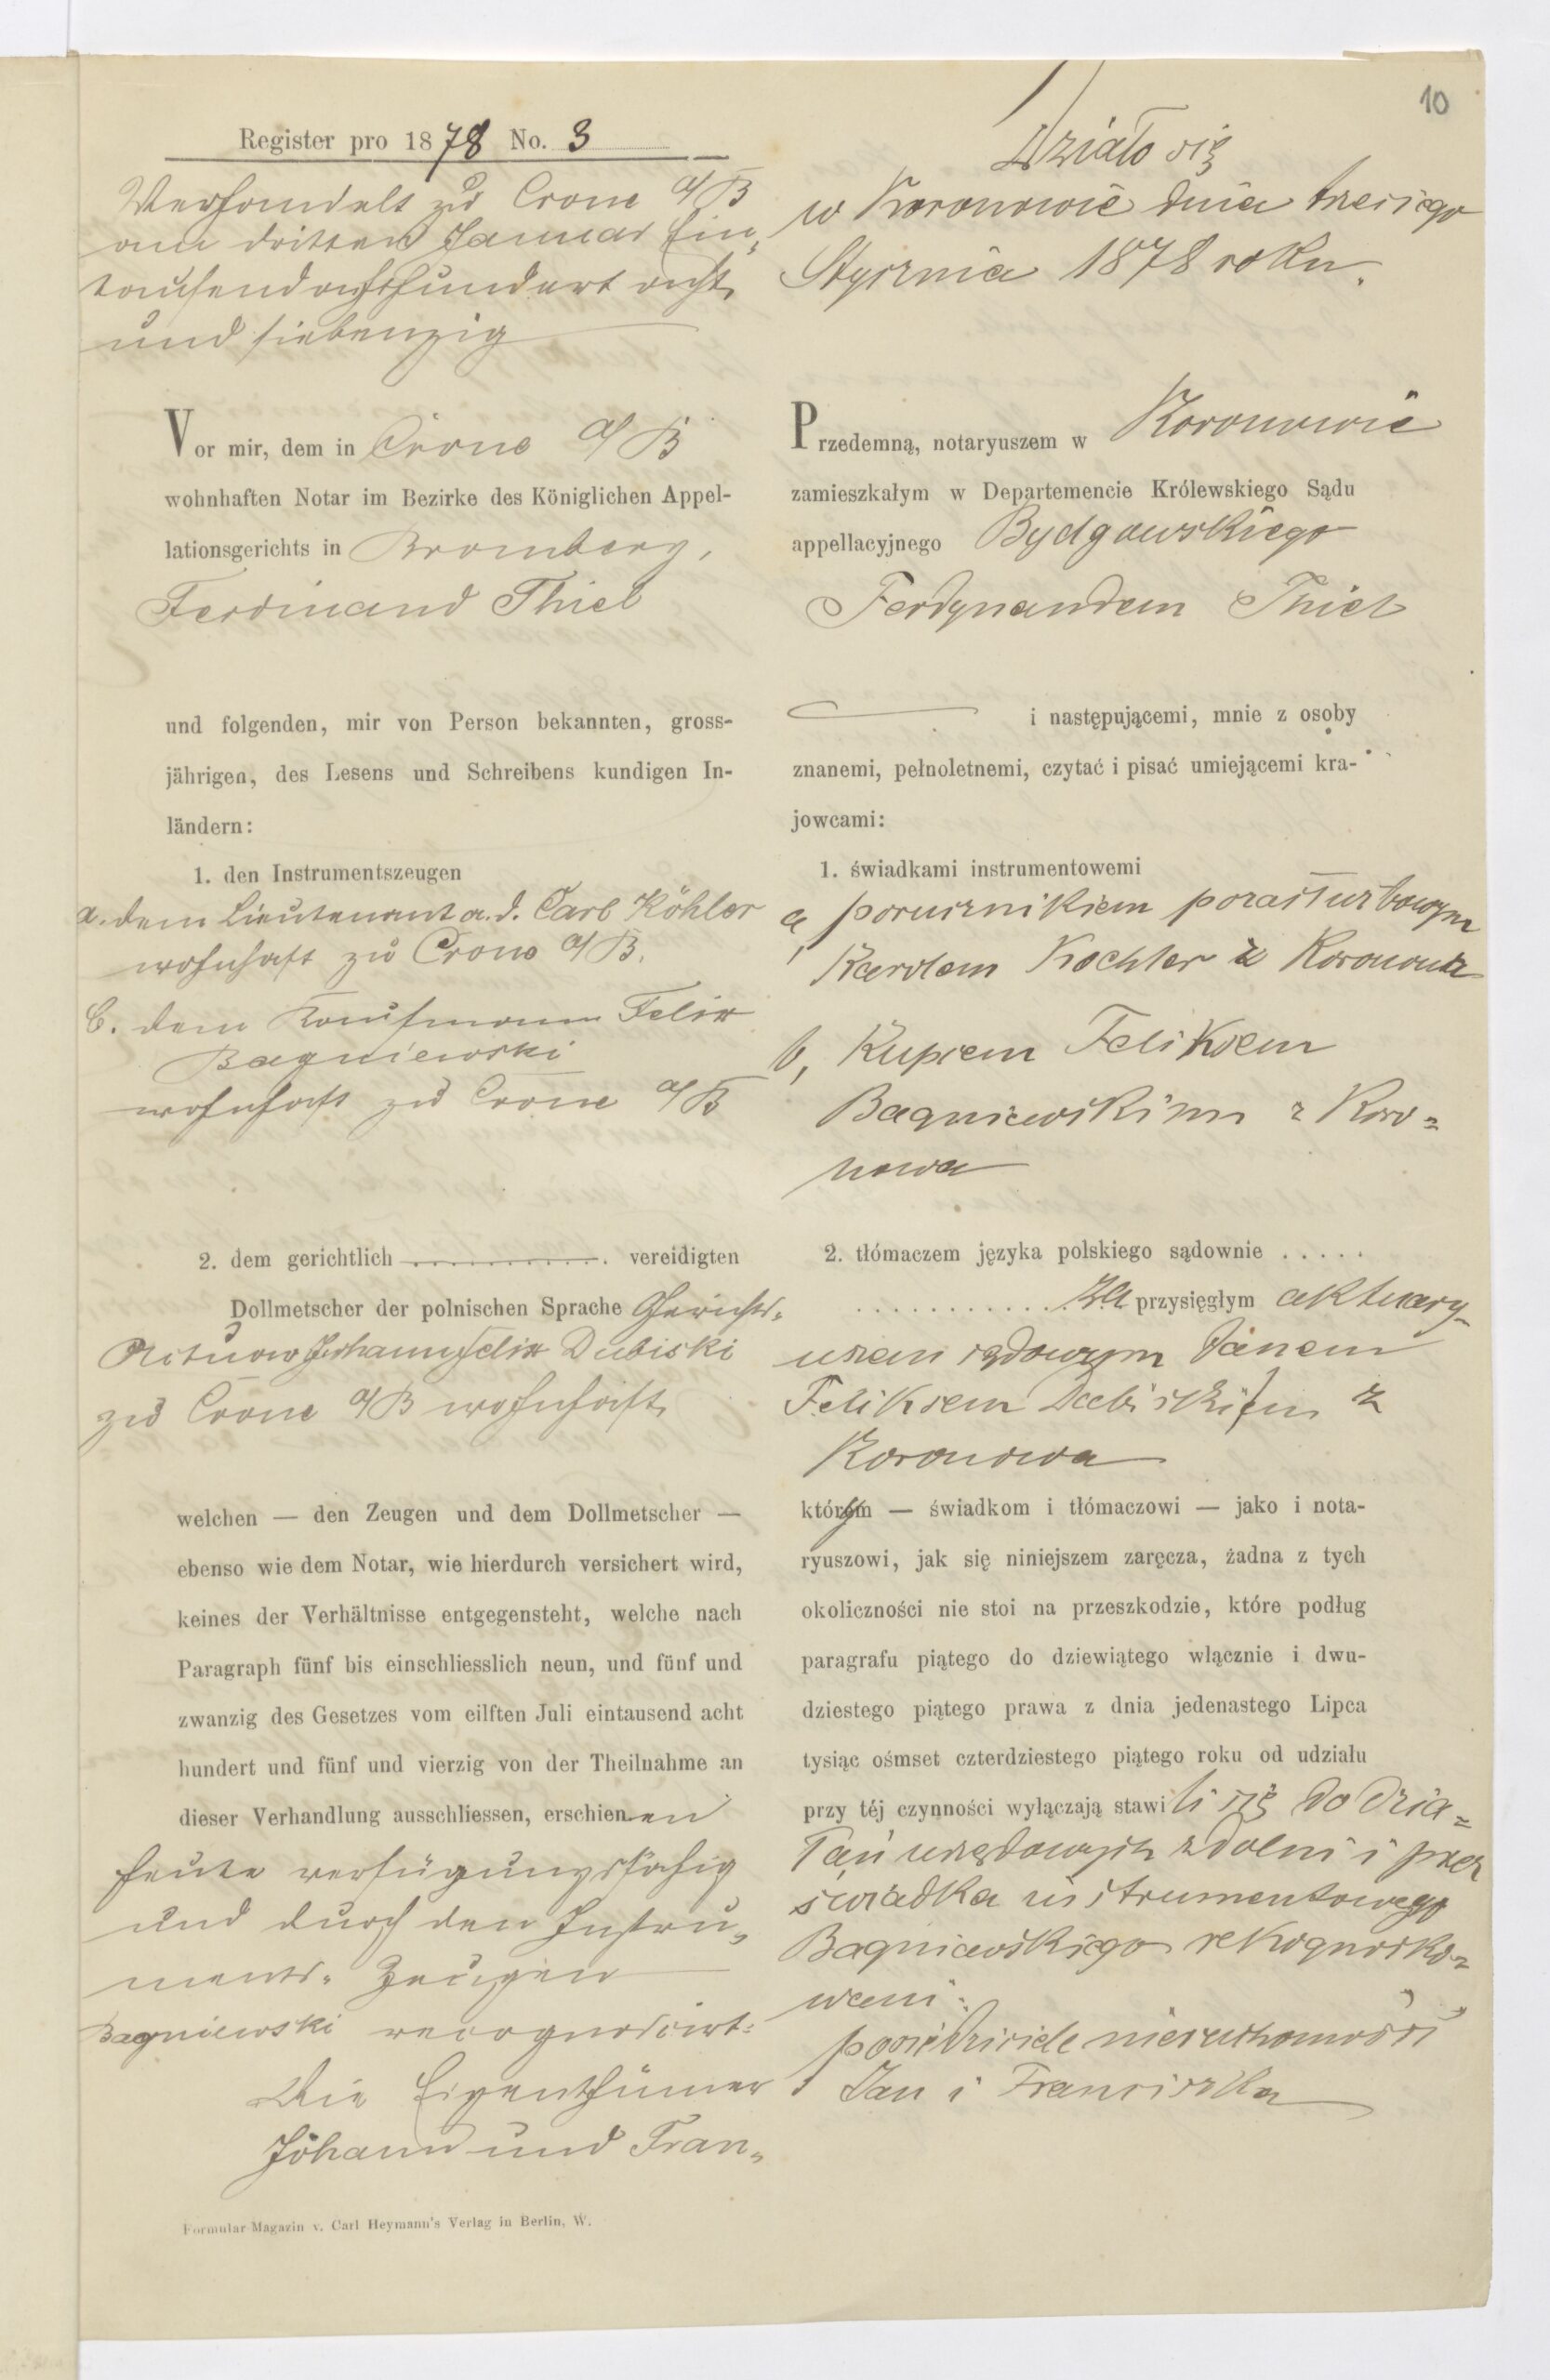 10
Register pro 1878 No. 3
Verhandelt zu Crone a/B
am dritten Januar Ein-
tausendachthundert acht
und siebenzig
Vor mir, dem in Crone a/B
wohnhaften Notar im Bezirke des Königlichen Appel-
lationsgerichts in Bromberg,
Ferdinand Thiel
und folgenden, mir von Person bekannten, gross-
jährigen, des Lesens und Schreibens kundigen In-
ländern:
1. den Instrumentszeugen
a. dem Lieutenant a. d. Carl Köhler
wohnhaft zu Crone a/B.
b. dem Kaufmann Felix
Bagniewski
wohnhaft zu Crone a/B
2. dem gerichtlich ............ vereidigten
Dollmetscher der polnischen Sprache Gerichts-
Actuar Johann Felix Dubiski
zu Crone a/B wohnhaft
welchen — den Zeugen und dem Dollmetscher —
ebenso wie dem Notar, wie hierdurch versichert wird,
keines der Verhältnisse entgegensteht, welche nach
Paragraph fünf bis einschliesslich neun, und fünf und
zwanzig des Gesetzes vom eilften Juli eintausend acht
hundert und fünf und vierzig von der Theilnahme an
dieser Verhandlung ausschliessen, erschienen
heute verfügungsfähig
und durch den Instru-
ments-Zeugen
Bagniewski recognoscirt:
Die Eigenthümer
Johann und Fran-
Formular-Magazin v. Carl Heymann's Verlag in Berlin, W.
Działo się
w Koronowie dnia trzeciego
Stycznia 1878 roku.
Przedemną, notaryuszem w Koronowie
zamieszkałym w Departemencie Królewskiego Sądu
appellacyjnego Bydgowskiego
Ferdynandem Thiel
i następującemi, mnie z osoby
znanemi, pełnoletnemi, czytać i pisać umiejącemi kra-
jowcami:
1. świadkami instrumentowemi
a, porucznikiem pozasłużbowym
Karolem Kochler z Koronowa
b, Kupcem Feliksem
Bagniewskim z Koro-
nowa
2. tłómaczem języka polskiego sądownie .....
............ za przysięgłym aktuary-
uszem sądowym Janem
Feliksem Dubiskim z
Koronowa
którym — świadkom i tłómaczowi — jako i nota-
ryuszowi, jak się niniejszem zaręcza, żadna z tych
okoliczności nie stoi na przeszkodzie, które podług
paragrafu piątego do dziewiątego włącznie i dwu-
dziestego piątego prawa z dnia jedenastego Lipca
tysiąc ośmset czterdziestego piątego roku od udziału
przy téj czynności wyłączają stawili się do dzia-
łań urzędowych zdolni i przez
świadka instrumentowego
Bagniewskiego rekognosko-
wani:
posiedziciele nieruchomości
Jan i Franciszka